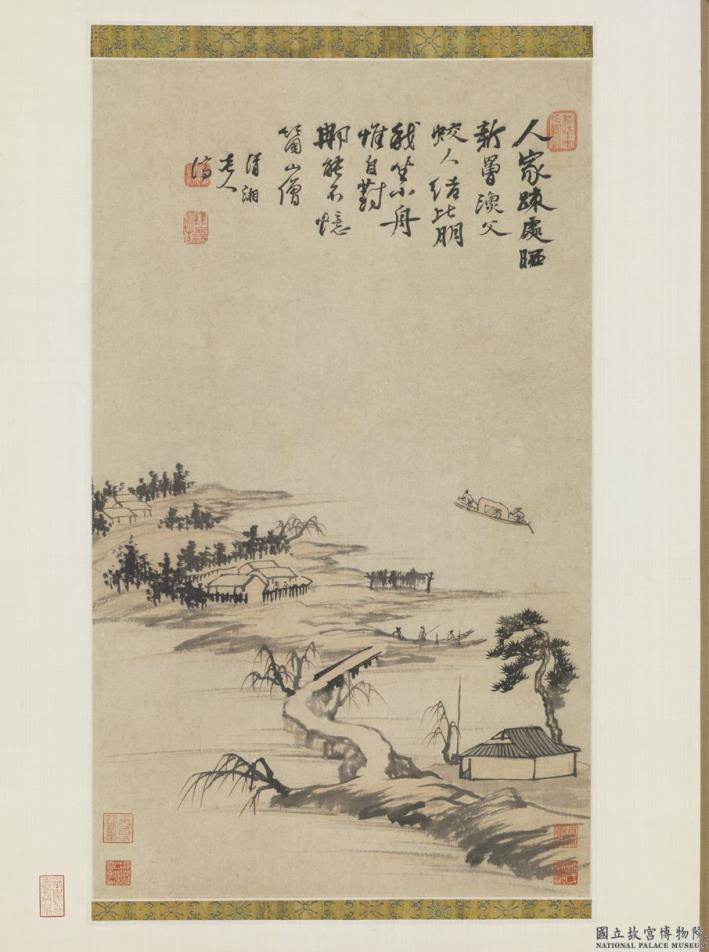 人家疎處晒
新罾漁父
蛟人結比朋
我坐小舟
惟自對
那能不憶
箇山僧
清湘
老人
濟
國立故宮博物院
NATIONAL PALACE MUSEUM